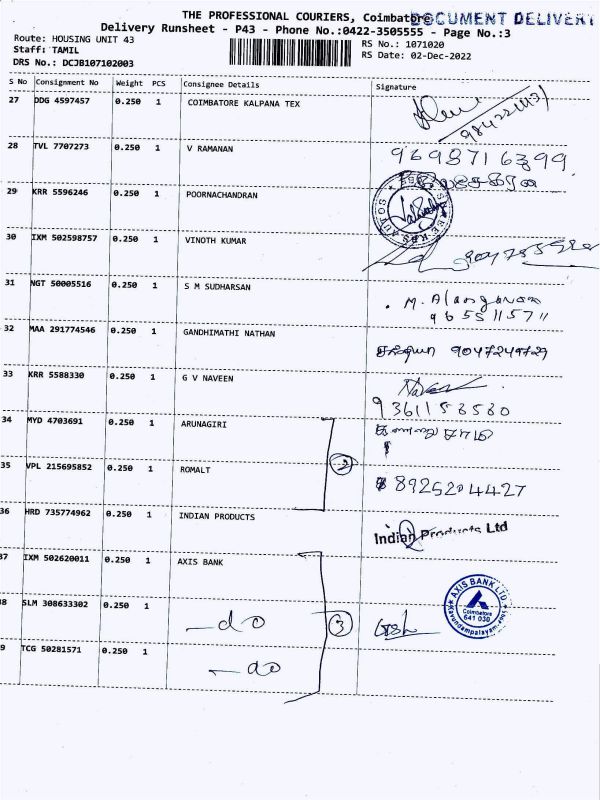 THE PROFESSIONAL COURIERS, Coimbatore
DOCUMENT DELIVERY
Delivery Runsheet - P43 - Phone No.:0422-3505555 - Page No.:3
Route: HOUSING UNIT 43
Staff: TAMIL
DRS No.: DCJB107102003
RS No.: 1071020
RS Date: 02-Dec-2022
S No Consignment No Weight PCS Consignee Details Signature
27 DDG 4597457 0.250 1 COIMBATORE KALPANA TEX
28 TVL 7707273 0.250 1 V RAMANAN
29 KRR 5596246 0.250 1 POORNACHANDRAN
30 IXM 502598757 0.250 1 VINOTH KUMAR
31 NGT 50005516 0.250 1 S M SUDHARSAN
9655115711
32 MAA 291774546 0.250 1 GANDHIMATHI NATHAN
33 KRR 5588330 0.250 1 G V NAVEEN
34 MYD 4703691 0.250 1 ARUNAGIRI
35 VPL 215695852 0.250 1 ROMALT
2
8925204427
36 HRD 735774962 0.250 1 INDIAN PRODUCTS
Indian Products Ltd
37 IXM 502620011 0.250 1 AXIS BANK
38 SLM 308633302 0.250 1 -do
3
AXIS BANK LTD
Coimbatore
641 030
Kavundampalayam
39 TCG 50281571 0.250 1 -do